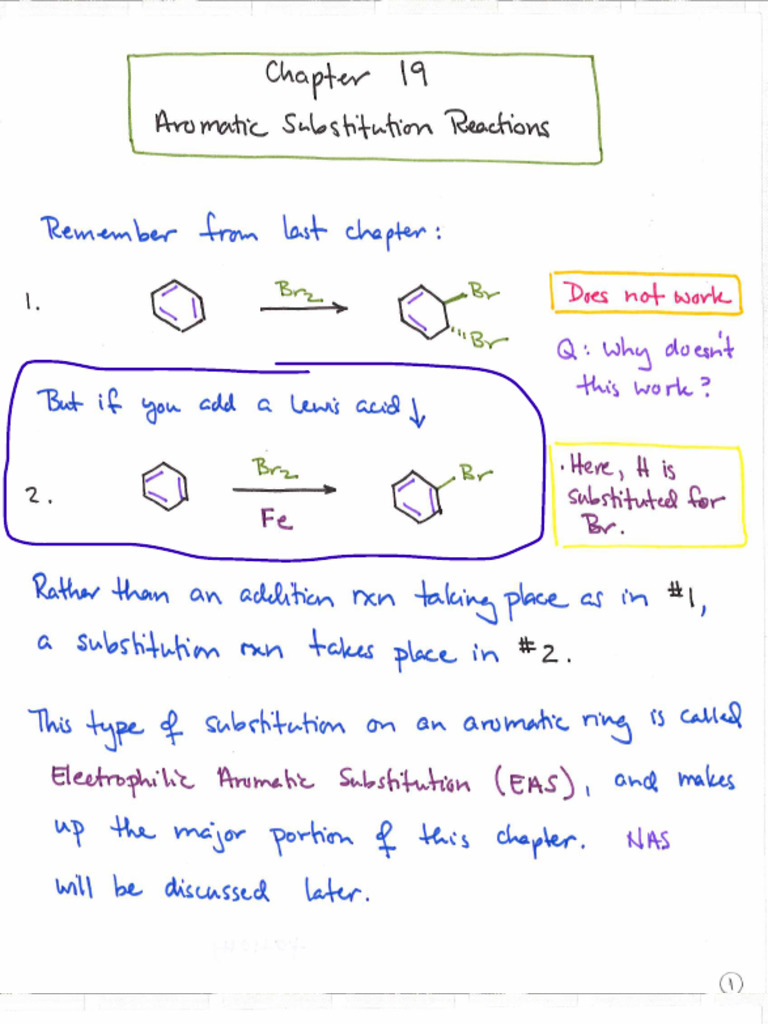 Chapter 19
Aromatic Substitution Reactions
Remember from last chapter:
1.
Br2
Br
Br
Does not work
Q: Why doesn't
this work?
But if you add a Lewis acid ↓
2.
Br2
Fe
Br
· Here, H is
substituted for
Br.
Rather than an addition rxn taking place as in #1,
a substitution rxn takes place in #2.
This type of substitution on an aromatic ring is called
Electrophilic Aromatic Substitution (EAS), and makes
up the major portion of this chapter. NAS
will be discussed later.
1